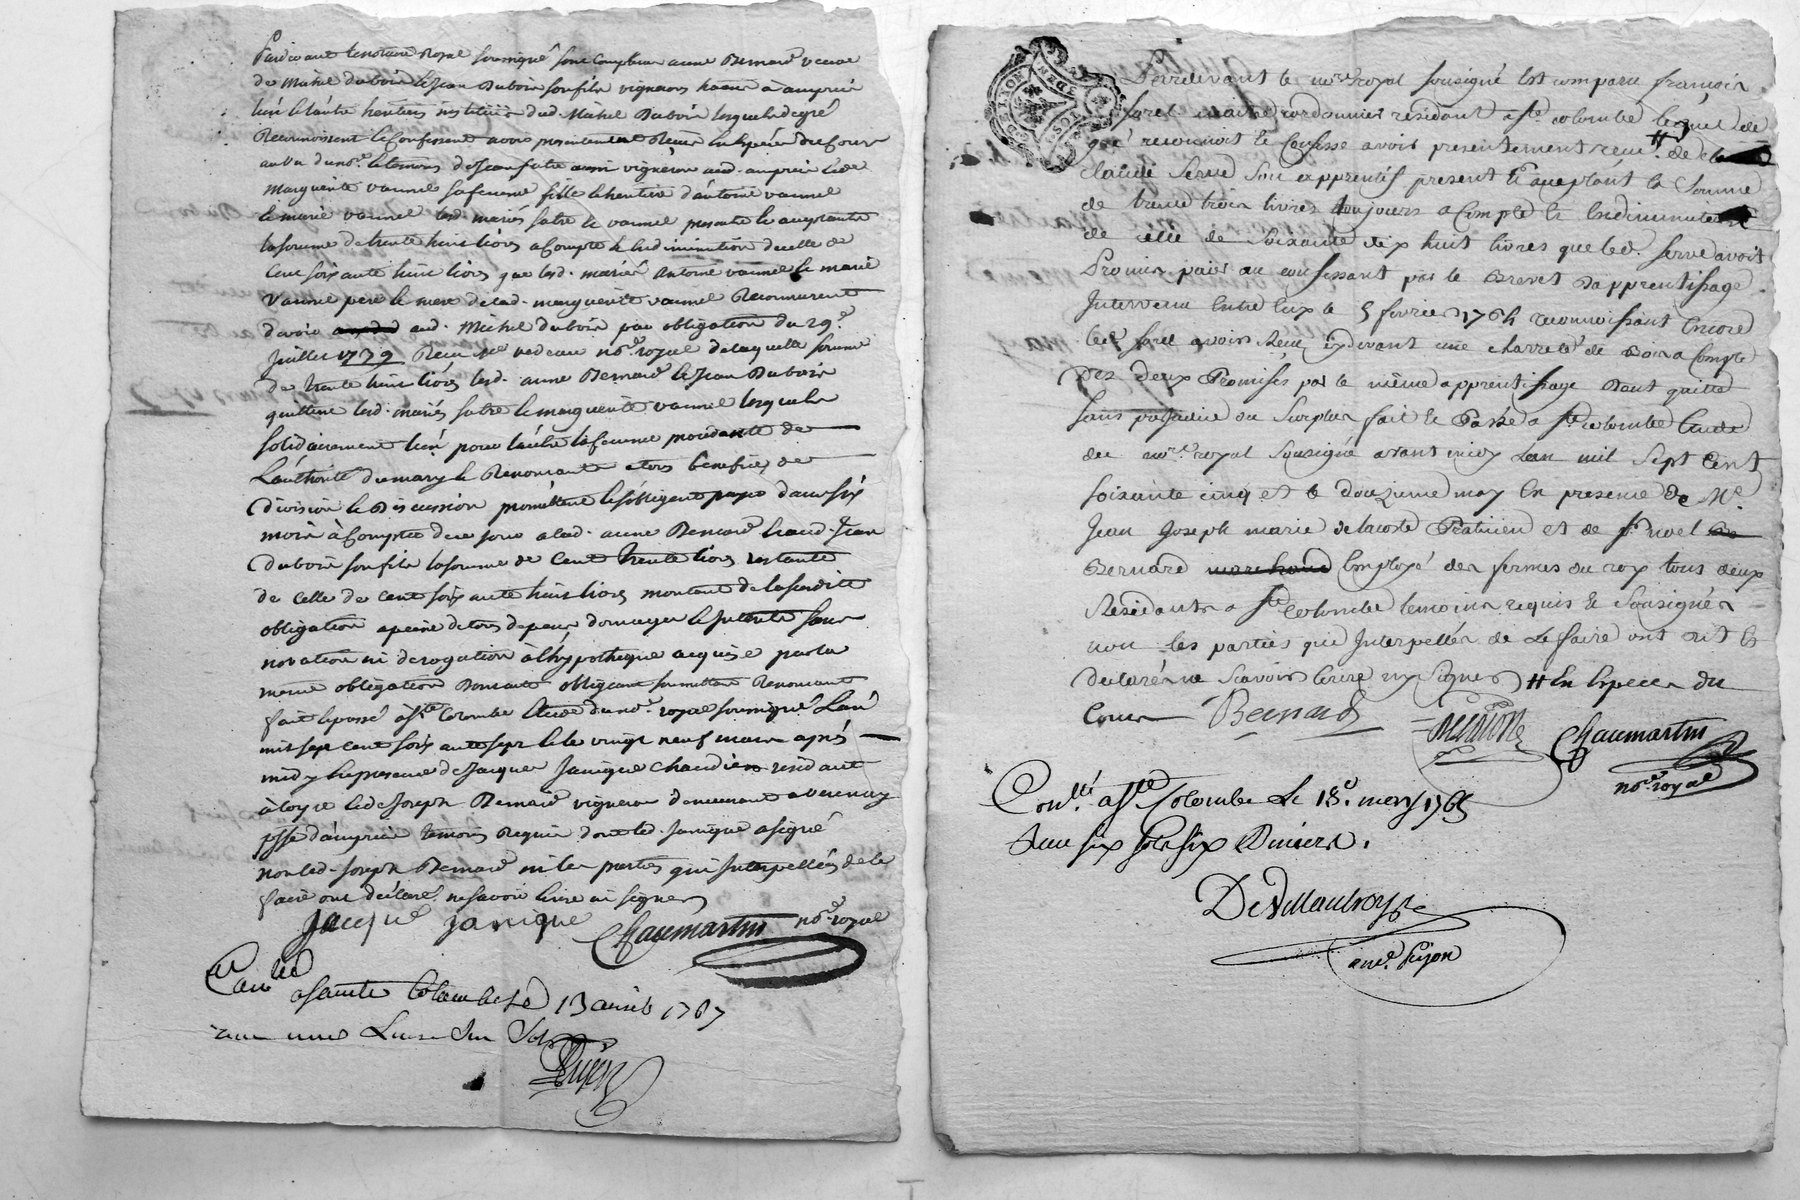 Pardevant le notaire Royal soussigné sont comparu anne Bernard veuve
de Michel dubois & Jean Dubois son fils vigneron habitant à ampuis
lun & lautre heritiers institués dud. Michel Dubois lesquels de gré
Reconnoissent & Confessent avoir presentement Receu en Espece de Cours
au vu du no.re & temoins de Jean satre aussi vigneron aud. ampuis & de
Marguerite vannel sa femme fille & heritiere d'antoine vannel
& marie vannel lesd. mariés satre & vannel presents & acceptants
la somme de trente huit livres acompte & en diminution de celle de
Cent soixante huit livres que lesd. mariés Antoine vannel & marie
vannel pere & mere de lad. marguerite vannel Reconnurent
devoir aud. Michel dubois par obligation du 29.e
Juillet 1739 Receu M.e vedeau no.re royal de laquelle somme
de trente huit livres lesd. anne Bernard & Jean Dubois
quittent lesd. mariés satre & marguerite vannel lesquels
solidairement lun pour lautre la femme procedante de
L'authorité du mary & Renonçant a tous benefices de
division & Discussion promettent & s'obligent payer dans six
mois à Compter de ce jour a lad. anne Bernard & aud. Jean
dubois son fils la somme de Cent trente livres restante
de celle de cent soixante huit livres montant de la susdite
obligation a peine de tous depens domages & Interets sans
novation ni derogation à lhypotheque acquise par la
meme obligation Domant obligeant soumettant Renonçant
fait & passé à S.te Colombe Etude du no.re royal soussigné Lan
mil sept cent soixante sept & le vingt neuf mars après
midy en presence de Jacques Janique chaudier residant
à loyre & de Joseph Bernard vigneron demeurant a verenay
psse d'ampuis temoins Requis dont led. Janique a signé
non led. Joseph Bernard ni les parties qui Interpellées de le
faire ont déclaré ne savoir ecrire ni signer
Jacque janique Chaumartin no.re royal
Con.llé a sainte Colombe le 13 avril 1767
une Livre un sol
GEN DE LYON
Pardevant le no.re royal soussigné est comparu françois
farel maitre cordonnier résidant a S.te colombe lequel de
gré reconnoit & Confesse avoir presentement receu # de
Claude Serve son apprentif present & acceptant la Somme
de trente trois livres toujours a Compte & En diminution
de celle de Soixante dix huit livres que led. Serve avoit
Promis paier au confessant par le Brevet D'apprentissage
Intervenu Entre Eux le 5 fevrier 1764 reconnoissant Encore
led. farel avoir Receu cydevant une charreté de Bois a Compte
Des Deux Promises par le même apprentissage Dont quitte
sans préjudice du Surplus fait & Passé a S.te colombe Etude
du no.re royal Soussigné avant midy Lan mil Sept Cent
soixante cinq et le douzieme may En presence de M.e
Jean Joseph marie delacoste Praticien et de S.r noel
Bernard marchand Employé des fermes du roy tous deux
Residants a S.te colombe temoins requis & Soussignés
non les parties qui Interpellés de Le faire ont dit &
declaré ne Scavoir Ecrire ny Signer # En Especes du
Cours Bernard Delacoste Chaumartin
no.re royal
Con.llé a S.te Colombe Le 18.e may 1765
Reçu six sols six Deniers.